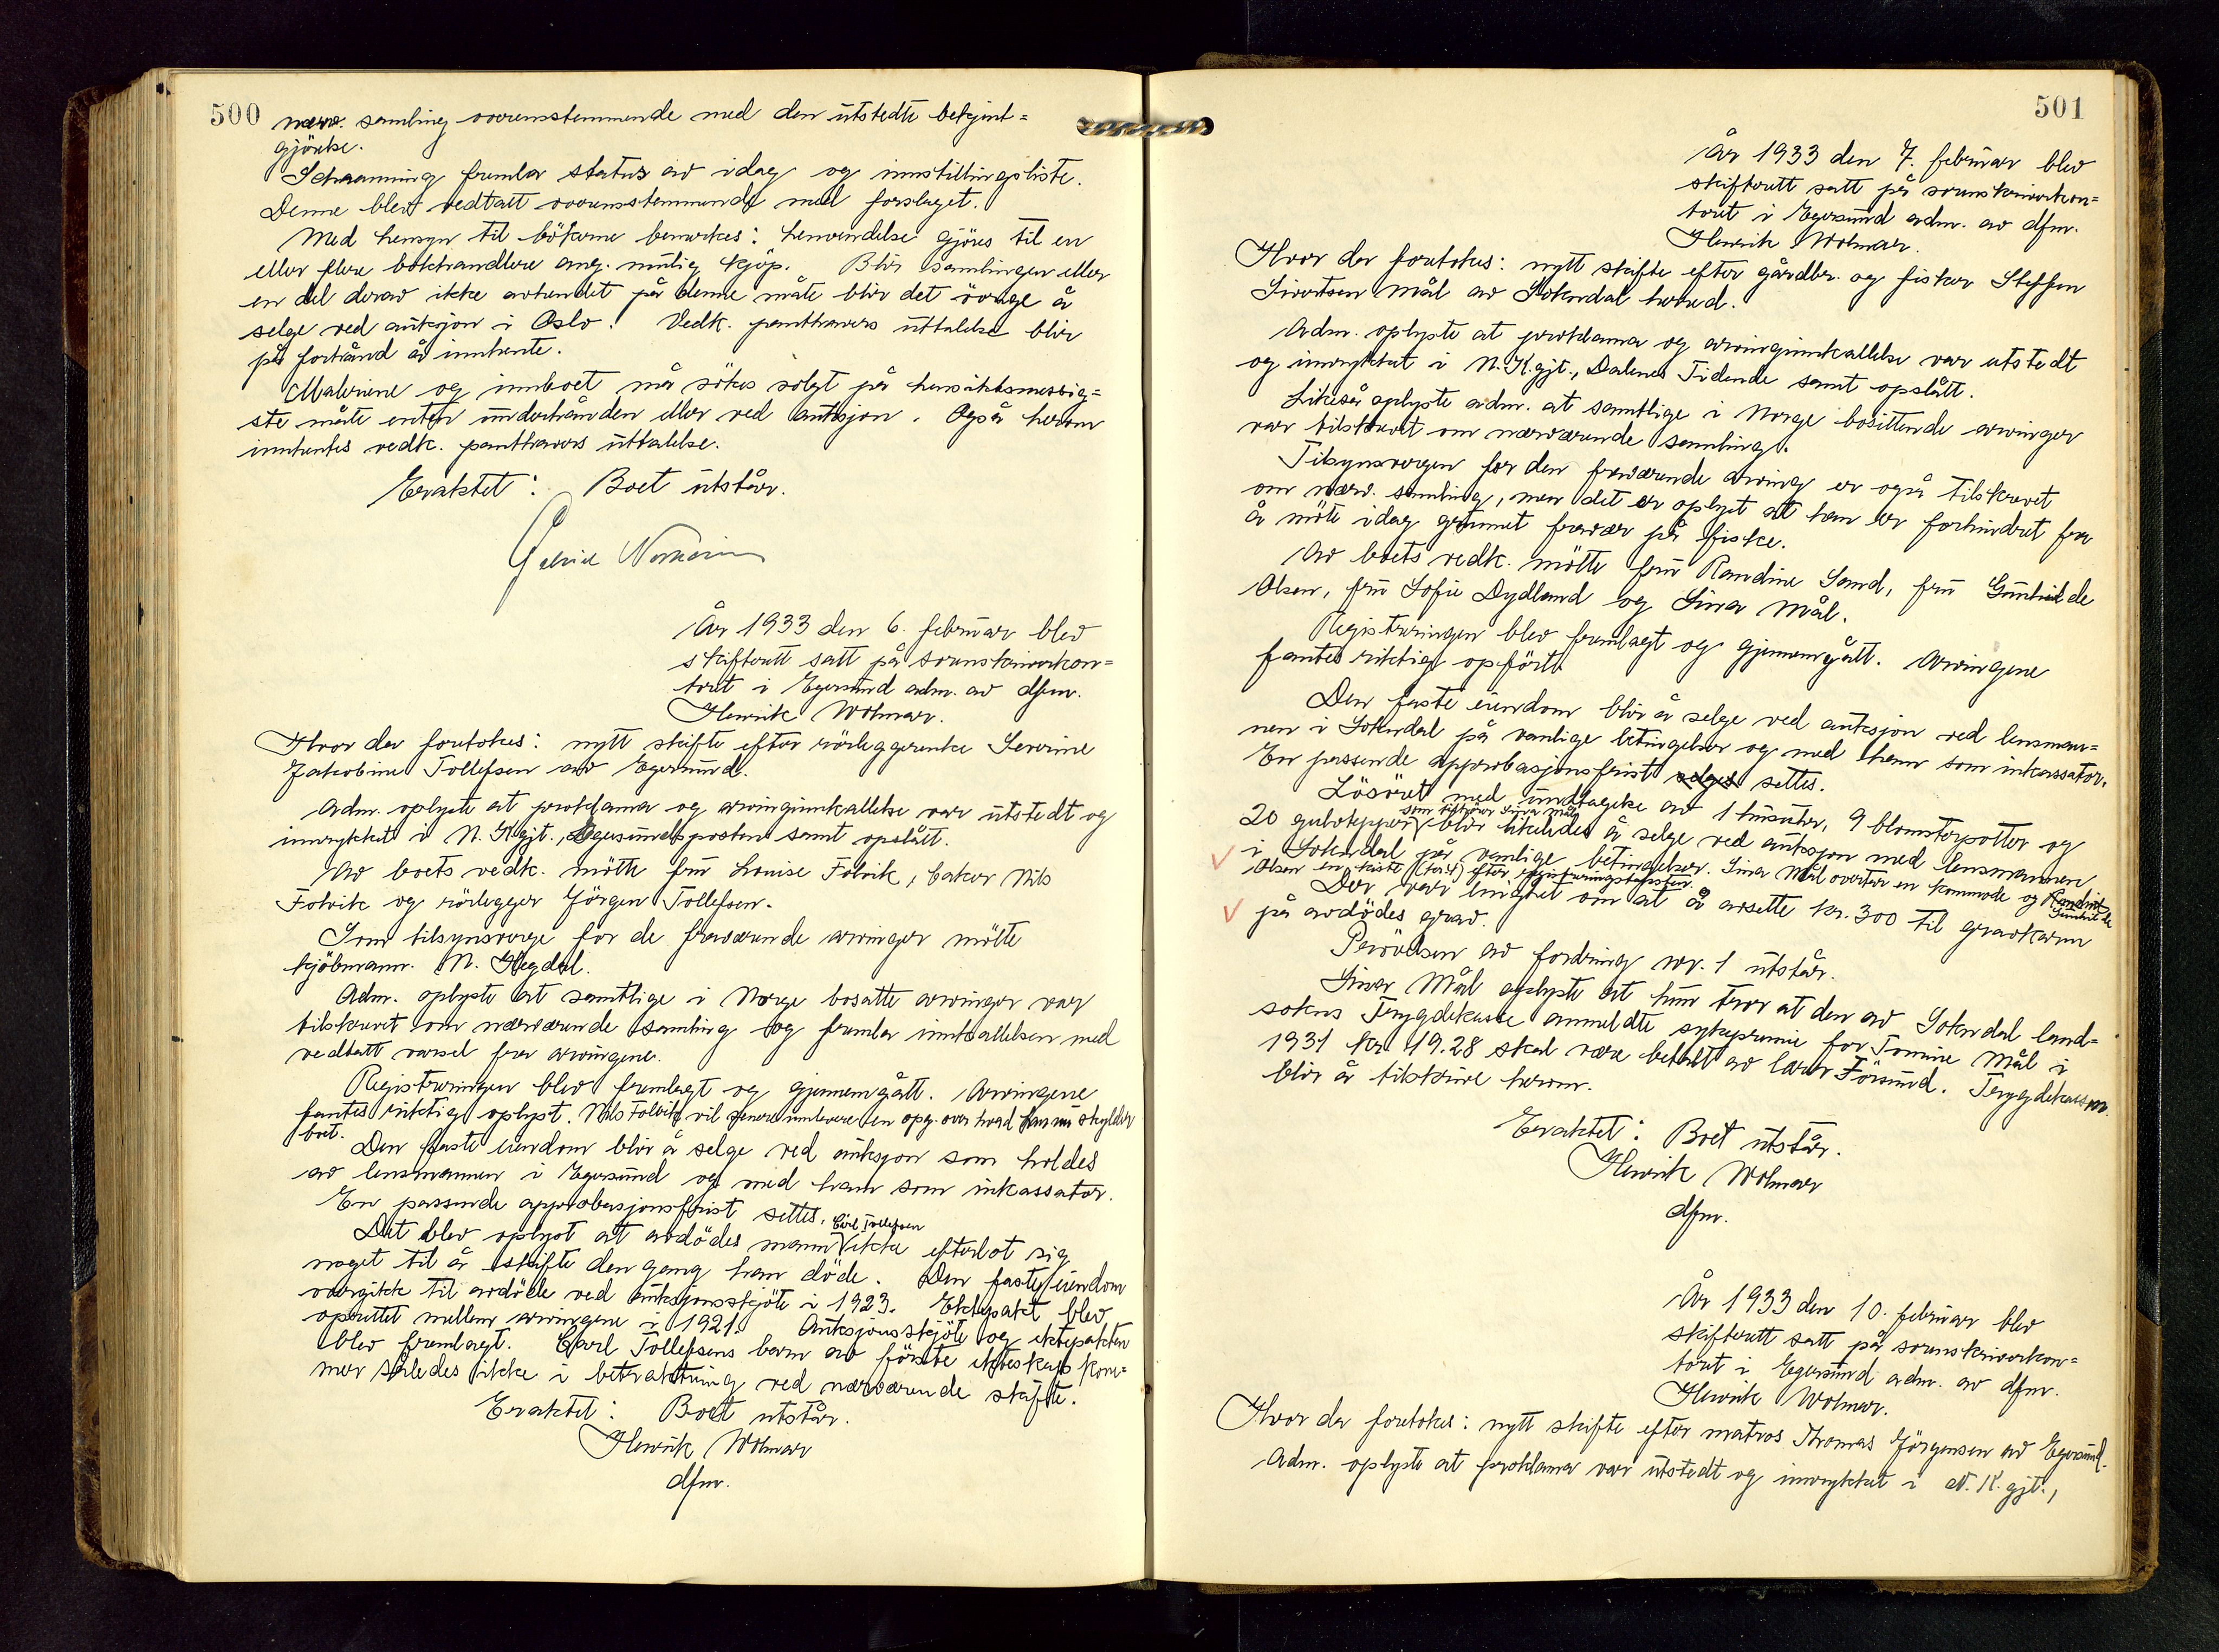 500
nærv. samling overensstemmende med den utstedte bekjent=
gjörelse.
Schaanning fremla status av idag og innstillingsliste.
Denne blev vedtatt overensstemmende med forslaget.
Med hensyn til bökerne bemerkes: henvendelse gjöres til en
eller flere bokhandlere ang. mulig kjöp. Blir samlingen eller
en del derav ikke avhendet på denne måte blir det övrige å
selge ved auksjon i Oslo. Vedk. panthavers uttalelse blir
på forhånd å innhente.
Maleriene og innboet må sökes solgt på hensiktsmessig=
ste måte enten underhånden eller ved auksjon. Også herom
innhentes vedk. panthavers uttalelse.
Eraktet: Boet utstår.
År 1933 den 6. februar blev
skifterett satt på sorenskriverkon=
toret i Egersund adm. av dfm.
Henrik Wolmar.
Hvor der foretokes: nytt skifte efter rörleggerenke Severine
Jakobine Tollefsen av Egersund.
Adm. oplyste at proklama og arvinginnkallelse var utstedt og
innrykket i N. Kgjt., Egersundsposten samt opslått.
Av boets vedk. mötte fru Louise Folvik, baker Nils
Folvik og rörlegger Jörgen Tollefsen.
Som tilsynsverge for de fraværende arvinger mötte
kjöbmann. N. Hegdal.
Adm. oplyste at samtlige i Norge bosatte arvinger var
tilskrevet om nærværende samling og fremla innkallelsen med
vedtatt varsel fra arvingene.
Registreringen blev fremlagt og gjennemgått. Arvingene
fantes riktig oplyst. Nils Folvik vil senere innlevere en opg. over hvad han nu skylder
boet.
Den faste eiendom blir å selge ved auksjon som holdes
av lensmannen i Egersund og med ham som inkassator.
En passende approbasjonsfrist settes.
Carl Tollefsen
Det blev oplyst at avdödes mann ikke efterlot sig
noget til å skifte den gang han döde. Den faste eiendom
overgikk til avdöde ved auksjonsskjöte i 1923. Ektepakt blev
oprettet mellem arvingene i 1921. Auksjonsskjöte og ektepakten
blev fremlagt. Carl Tollefsens barn av förste ekteskap kom=
mer således ikke i betraktning ved nærværende skifte.
Eraktet: Boet utstår.
Henrik Wolmar
dfm.
501
År 1933 den 7. februar blev
skifterett satt på sorenskriverkon=
toret i Egersund adm. av dfm.
Henrik Wolmar.
Hvor der foretokes: nytt skifte efter gårdbr. og fisker Steffen
Sivertsen Mål av Sokndal herred.
Adm. oplyste at proklama og arvinginnkallelse var utstedt
og innrykket i N. Kgjt., Dalenes Tidende samt opslått.
Likeså oplyste adm. at samtlige i Norge bosittende arvinger
var tilskrevet om nærværende samling.
Tilsynsvergen for den fraværende arving er også tilskrevet
om nærv. samling, men det er oplyst at han er forhindret fra
å möte idag grunnet fravær på fiske.
Av boets vedk. mötte fru Randine Sand, fru Gunhilde
Olsen, fru Sofie Dydland og Sina Mål.
Registreringen blev fremlagt og gjennemgått. Arvingene
fantes riktig opfört.
Den faste eiendom blir å selge ved auksjon ved lensman=
nen i Sokndal på vanlige betingelser og med ham som inkassator.
En passende approbasjonsfrist selges settes.
Lösöret med undtagelse av 1 hus, 9 blomsterpotter og
som tilhörer Sina Mål
20 gulvtepper blir likeledes å selge ved auksjon med lensmannen
i Sokndal på vanlige betingelser. Sina Mål overtar en kommode og Randine
Gunhilde
Olsen en kiste efter registreringstaksten.
Der var enighet om at å avsette kr. 300 til gravkarm
på avdödes grav.
Prövelsen av fordring nr. 1 utstår.
Sina Mål oplyste at hun tror at den av Sokndal land=
sokns Trygdekasse anmeldte sykepremie for Tomine Mål i
1931 kr. 19.28 skal være betalt av lærer Försund. Trygdekassen
blir å tilskrive herom.
Eraktet: Boet utstår.
Henrik Wolmar
dfm.
År 1933 den 10. februar blev
skifterett satt på sorenskriverkon=
toret i Egersund adm. av dfm.
Henrik Wolmar.
Hvor der foretokes: nytt skifte efter matros Thomas Jörgensen av Egersund.
Adm. oplyste at proklama var utstedt og innrykket i N. K. gjt.,